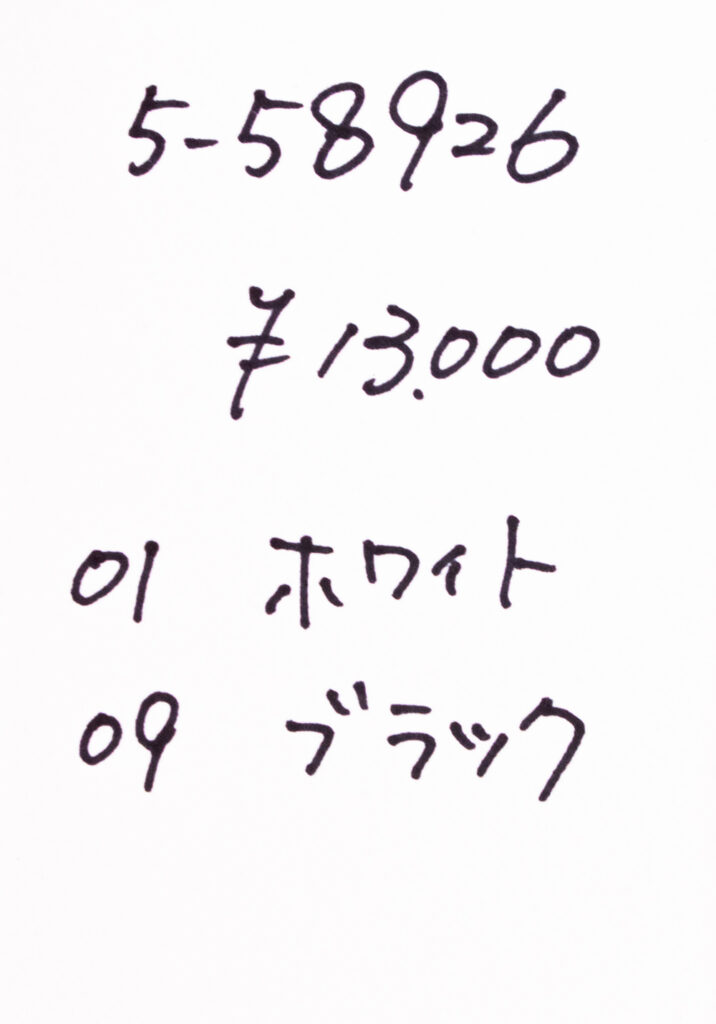 5-58926
¥13.000
01 ホワイト
09 ブラック